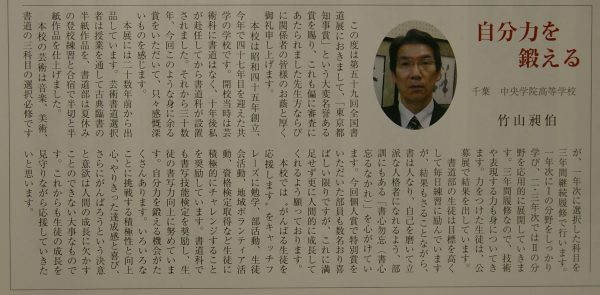 自分力を
鍛える
千葉　中央学院高等学校
竹山昶伯
この度は第五十九回全国書
道展におきまして、「東京都
知事賞」という大変名誉ある
賞を賜り、これも偏に審査に
あたられました先生方ならび
に関係者の皆様のお蔭と厚く
御礼申します。
本校は昭和四十五年創立、
今年で四十七年目を迎えた共
学の学校です。開校当時は芸
術科に書道はなく、十年後私
が赴任してから書道科が設置
されました。それから三十数
年、今回このような身に余る
賞をいただいて、只々感慨深
いものを感じます。
本展には二十数年前から出
品しています。芸術書道選択
者は授業を通して古典臨書の
半紙作品を、書道部は夏休み
の登校練習と合宿で半切と半
紙作品を仕上げました。
本校の芸術は音楽、美術、
書道の三科目の選択必修です
が、一年次に選択した科目を
三年間継続履修で行います。
一年次にⅠの分野をしっかり
学び、二、三年次ではⅡの分
野を応用的に展開していきま
す。三年間履修なので、技術
や表現する力も身についてき
ます。力をつけた生徒は、公
募展で結果を出しています。
書道部の生徒は目標を高く
して毎日練習に励んでいます
が、結果もさることながら、
書は人なり、自己を磨いて立
派な人格者になれるよう、部
訓にもある「書心勿忘―書心
忘るなかれ」を心がけてい
ます。今回個人賞で特別賞を
いただいた部員も数名おり喜
ばしい限りですが、これに満
足せず更に人間的に成長して
くれるよう願っております。
本校では「がんばる生徒を
応援します」をキャッチフ
レーズに勉学、部活動、生徒
会活動、地域ボランティア活
動、資格検定取得などに生徒が
積極的にチャレンジすること
を奨励しています。書道科で
も書写技能検定を奨励し、生
徒の書写力向上に努めていま
す。自分力を鍛える機会がた
くさんあります。いろいろな
ことに挑戦する積極性と向上
心、やりきった達成感と喜び、
さらにがんばろうという決意
と意欲は人間の成長に欠かす
ことのできない大事なもので
す。これからも生徒の成長を
見守りながら応援していきた
いと思います。